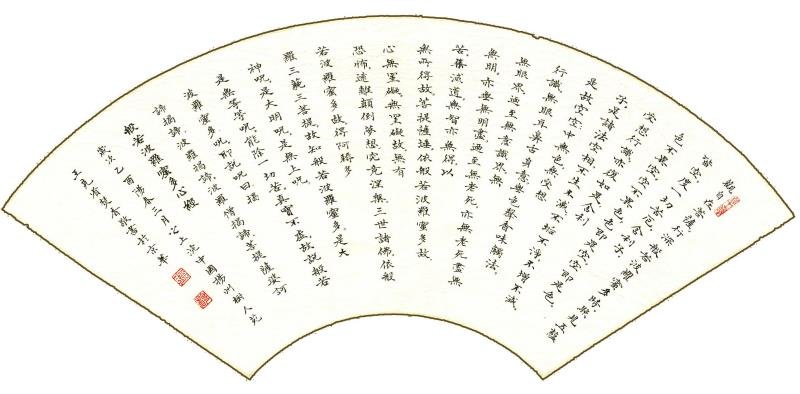 觀自在菩薩行深般若波羅蜜多時,照見五蘊
皆空,度一切苦厄,舍利子,
色不異空,空不異色,色即是空,空即是色,
受想行識,亦復如是,舍利
子,是諸法空相,不生不滅,不垢不淨,不增不減,
是故空中無色,無受想
行識,無眼耳鼻舌身意,無色聲香味觸法,
無眼界,乃至無意識界,無
無明,亦無無明盡,乃至無老死,亦無老死盡,無
苦集滅道,無智亦無得,以
無所得故,菩提薩埵,依般若波羅蜜多故
心無罣礙,無罣礙故,無有
恐怖,遠離顛倒夢想,究竟涅槃,三世諸佛,依般
若波羅蜜多故,得阿耨多
羅三藐三菩提,故知般若波羅蜜多,是大
神咒,是大明咒,是無上咒,
是無等等咒,能除一切苦,真實不虛,故說般若
波羅蜜多咒,即說咒曰,揭
諦揭諦,波羅揭諦,波羅僧揭諦,菩提薩婆訶
般若波羅蜜多心經
歲次乙酉陽春三月上浣中國揚州樹人苑
王克有焚香敬書於京華